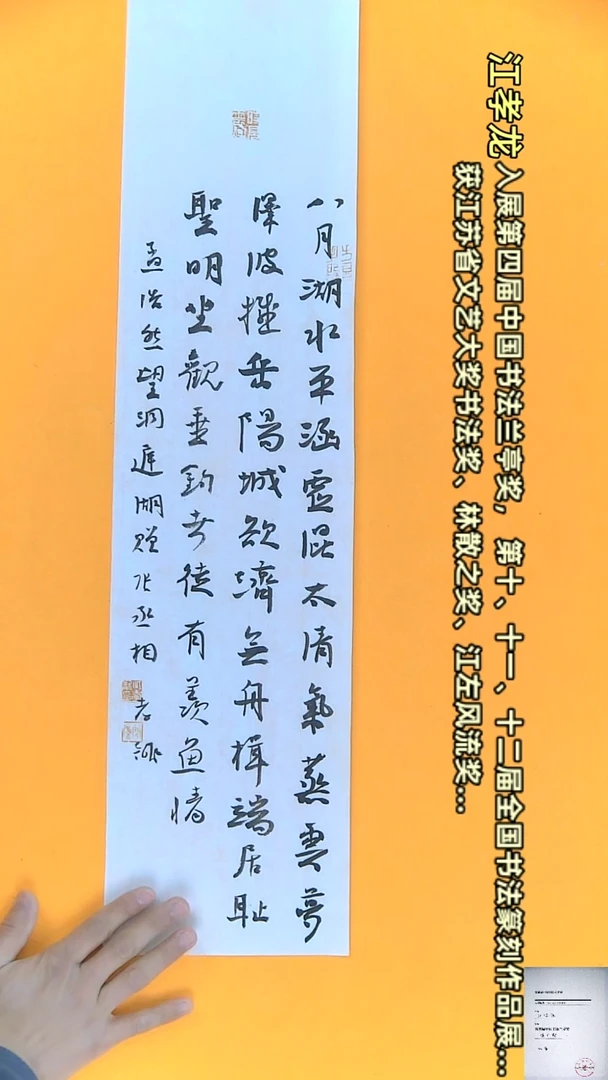 江孝龙
入展第四届中国书法兰亭奖，第十、十一、十二届全国书法篆刻作品展...
获江苏省文艺大奖书法奖、林散之奖、江左风流奖...
八月湖水平涵虛混太清氣蒸雲夢
澤波撼岳陽城欲濟無舟楫端居恥
聖明坐觀垂釣者徒有羨魚情
孟浩然望洞庭湖贈張丞相 孝龍